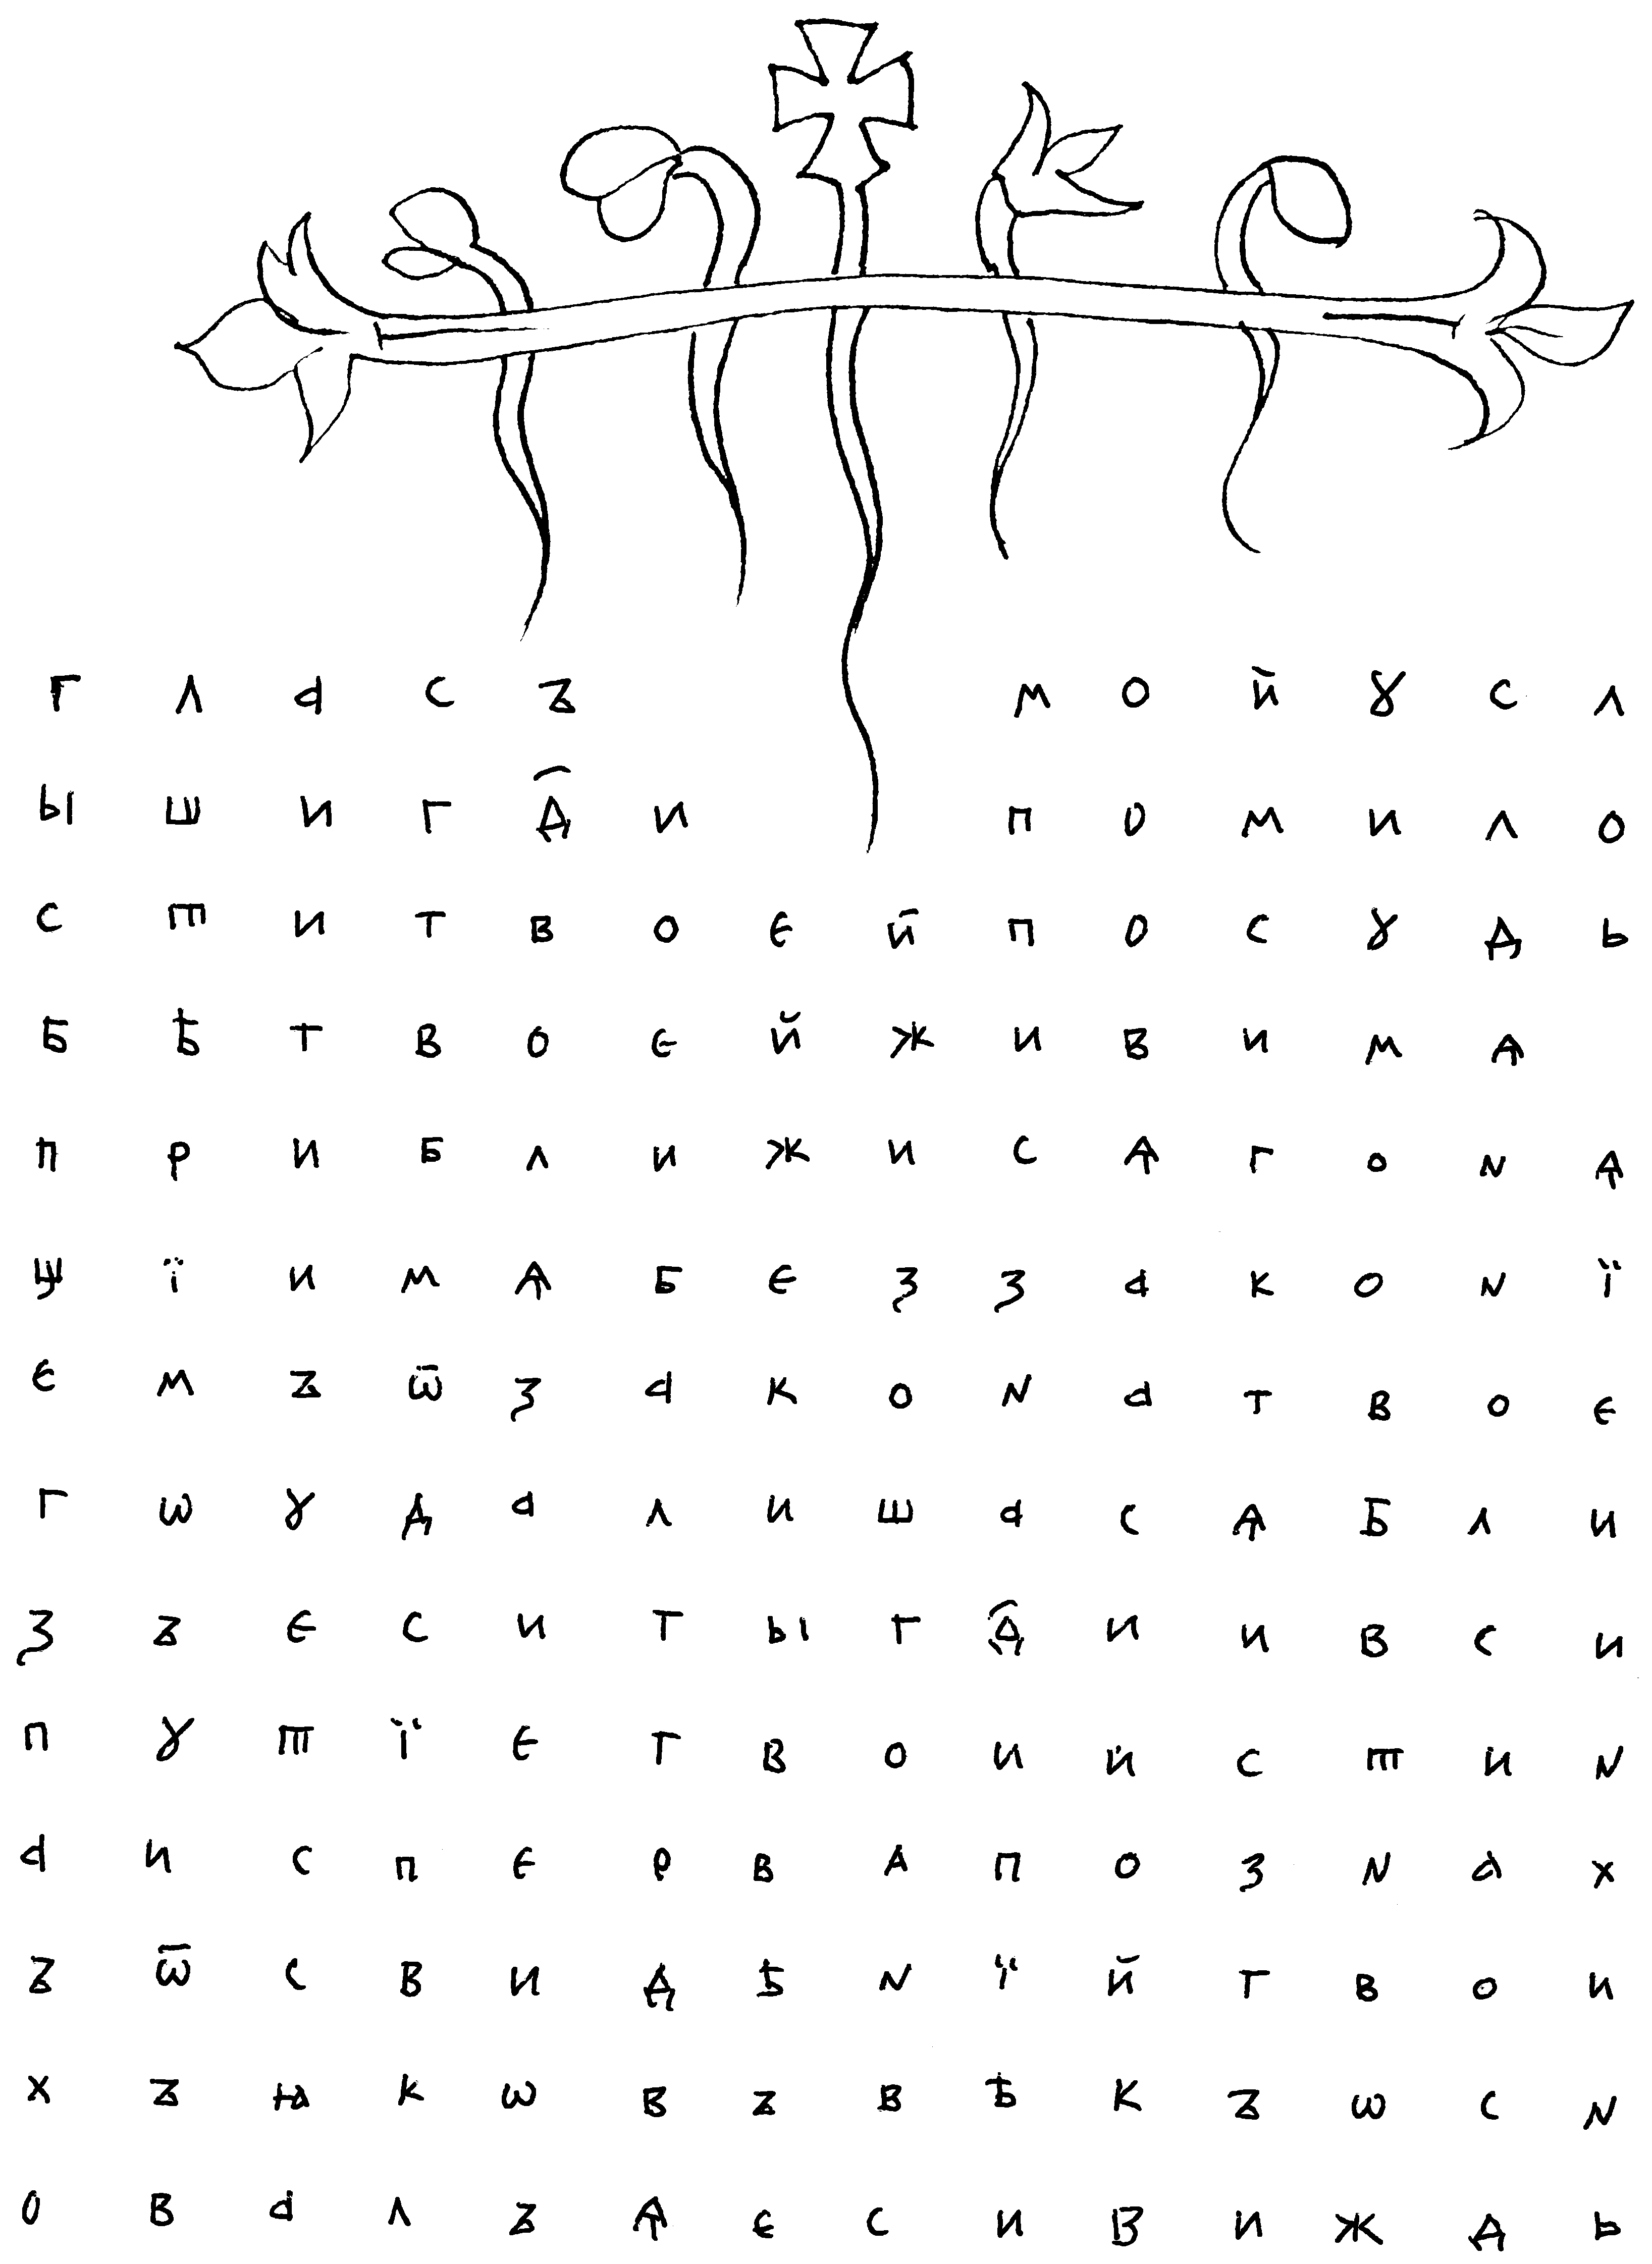 гласъ мой ꙋсл
ышиг҃ди по мило
сти твоей по сꙋдь
бѣ твоей живи мѧ
приближисѧ гонѧ
щїи мѧ беззаконї
емъ ѿ закона твое
гѡ ꙋдалишасѧ бли
зъ еси ты гд҃и и вси
пꙋтїе твои истин
а исперва познах
ъ ѿ свидѣнїй твои
хъ ꙗкѡ въ вѣкъ ѡсн
овалъ ѧ еси виждь